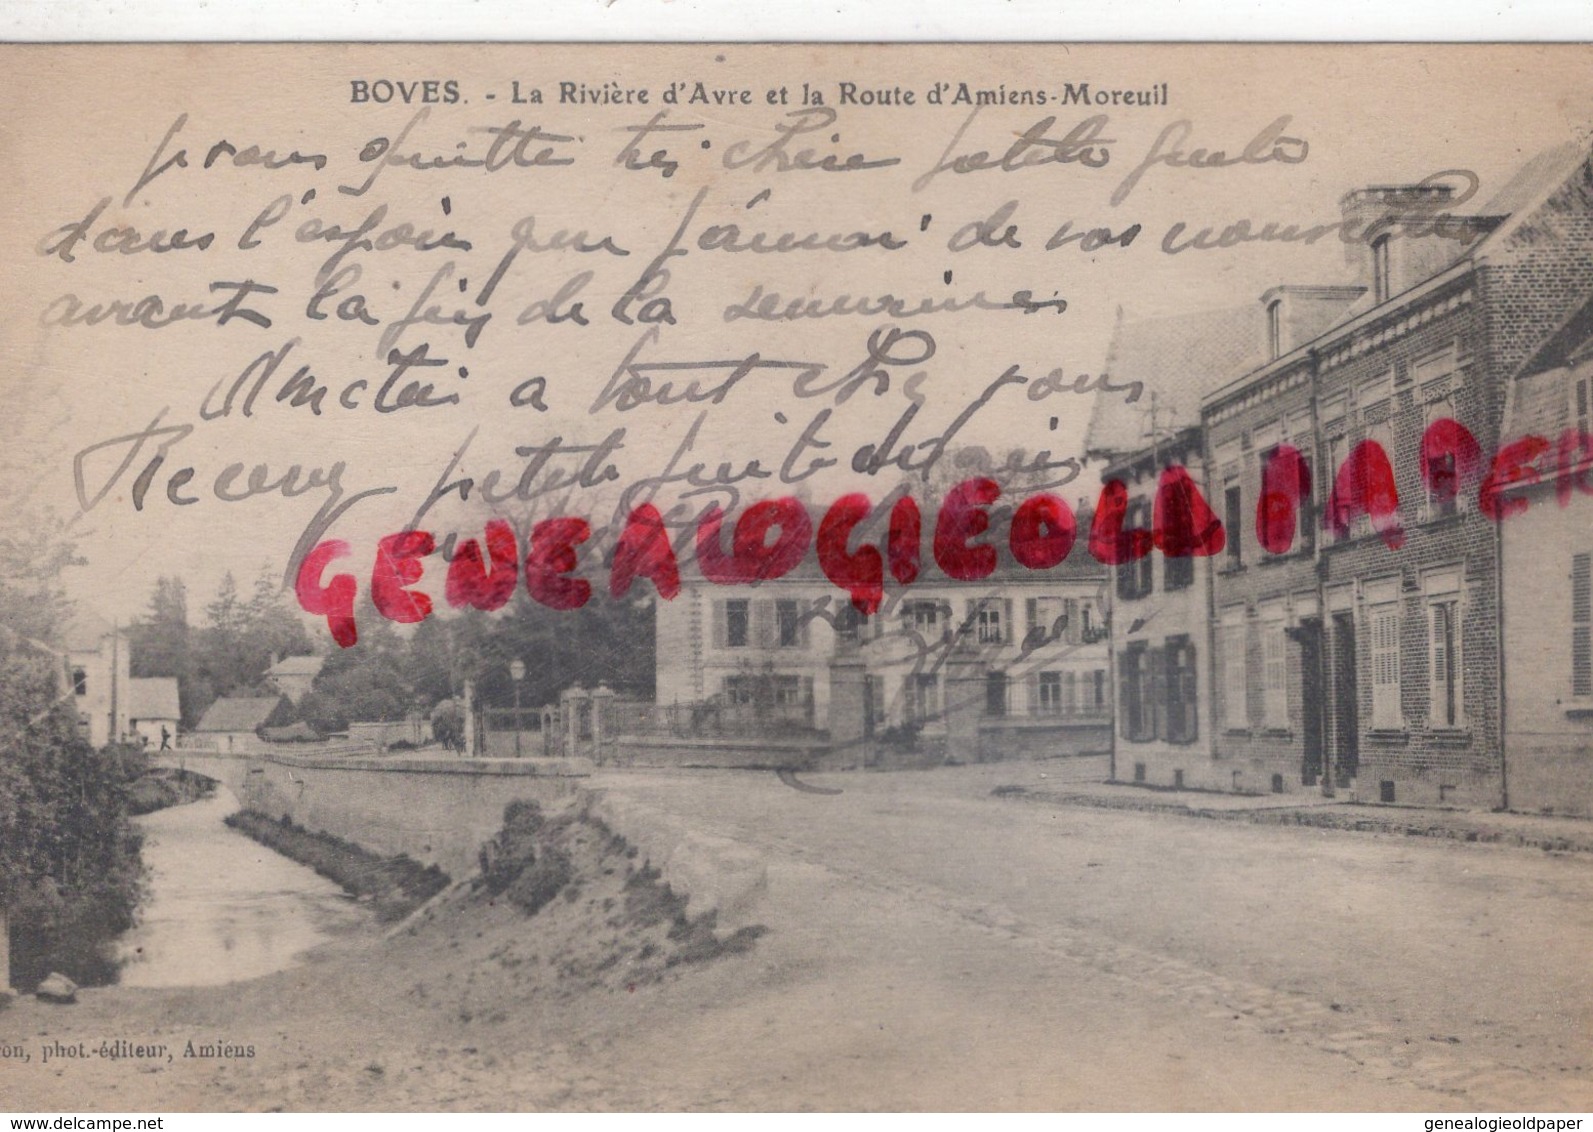 BOVES. - La Rivière d'Avre et la Route d'Amiens-Moreuil
vous quitte très chère petite
dans l'espoir que j'aurai de vos nouvelles
avant la fin de la semaine
Amitié a tout chez vous
Recevez petite
GENEALOGIEOLDPAPER
on, phot.-éditeur, Amiens
delcampe.net
genealogieoldpaper